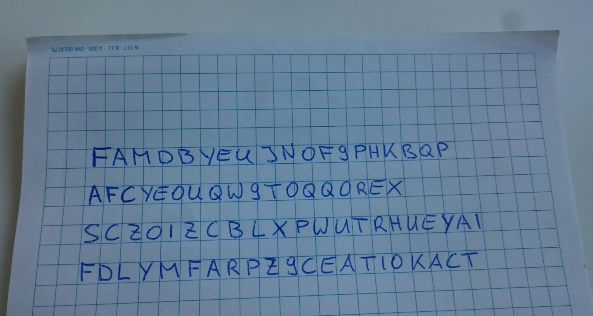 FAMDBYEUJNOF9PHKBQP
AFCYEOUQW9TOQQOREX
SCZOIZCBLXPWUTRHUEYAI
FDLYMFARPZ9CEATIOKACT